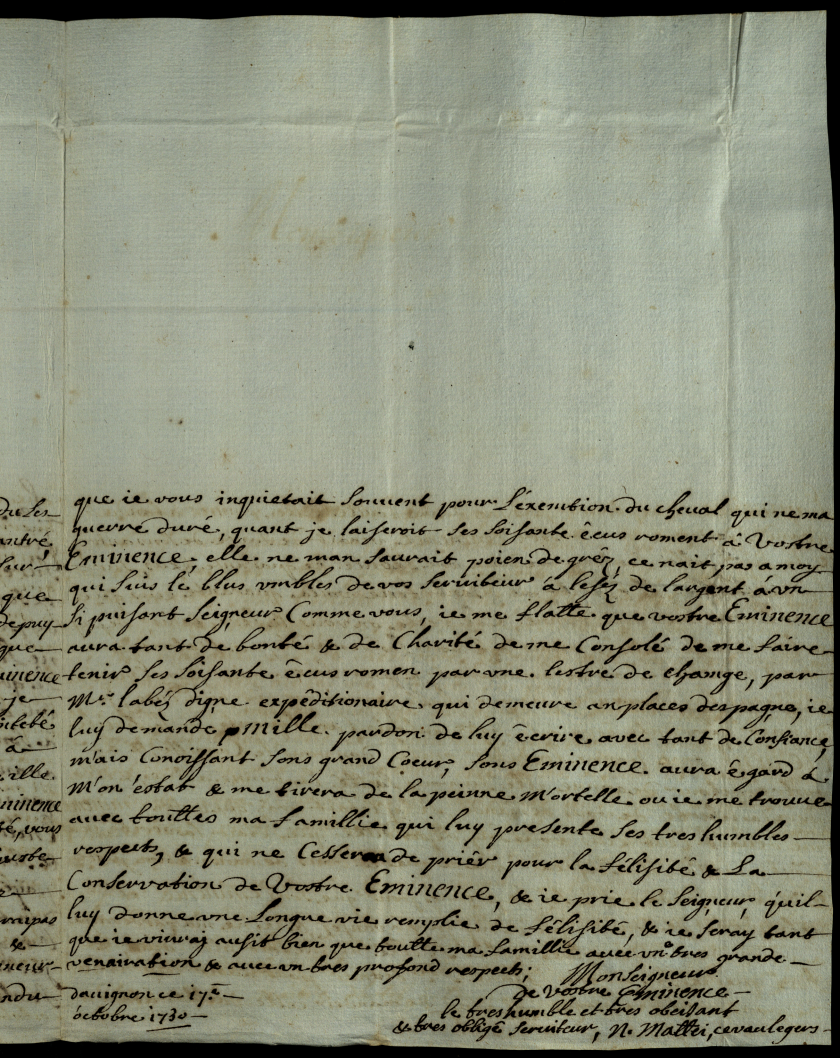 que ie vous inquietait souvent pour l'exemtion du cheval qui ne ma
guerre duré, quant je laiseroit ses soisante êcus roment à Vostre
Eminence, elle ne man saurait poien de gréz, ce nait pas a moy
qui suis le blus vmbles de vos serviteur à leséz de largent à vn
si puisant seigneur Comme vous, ie me flatte que vostre Eminence
aura tant de bonté & de Charité de me Consolé de me faire
tenir ses soisante êcus romen par vne lestre de change, par
Mr. labéz digne expéditionaire qui demeure an places despagne, ie
luy demande mille pardon de luy êcrire avec tant de Confiance,
mais Conoissant sons grand Coeur, sons Eminence aura êgard à
Mon éstat & me tirera de la peinne mortelle ou ie me trouve
avec touttes ma famillie qui luy presente ses tres humbles
respects, & qui ne Cessera de priér pour la félisité & La
Conservation de Vostre Eminence, & ie prie le seigneur, quil
luy donne vne Longue vie remplie de félisité, & ie seray tant
que ie vivraj ausit bien que toutte ma famillie avec vn tres grande
venairation & avec vn tres profond respects; Monseigneur
de vostre Eminence
dauignon ce 17e
octobre 1730
le tres humble et tres obeisant
& tres obligé serviteur, N. Mattei, cevaulegers
du les
antré
sur
que
depuy
que
minence
je
à
ville
minence
té, vous
juste
&
neur
ndu